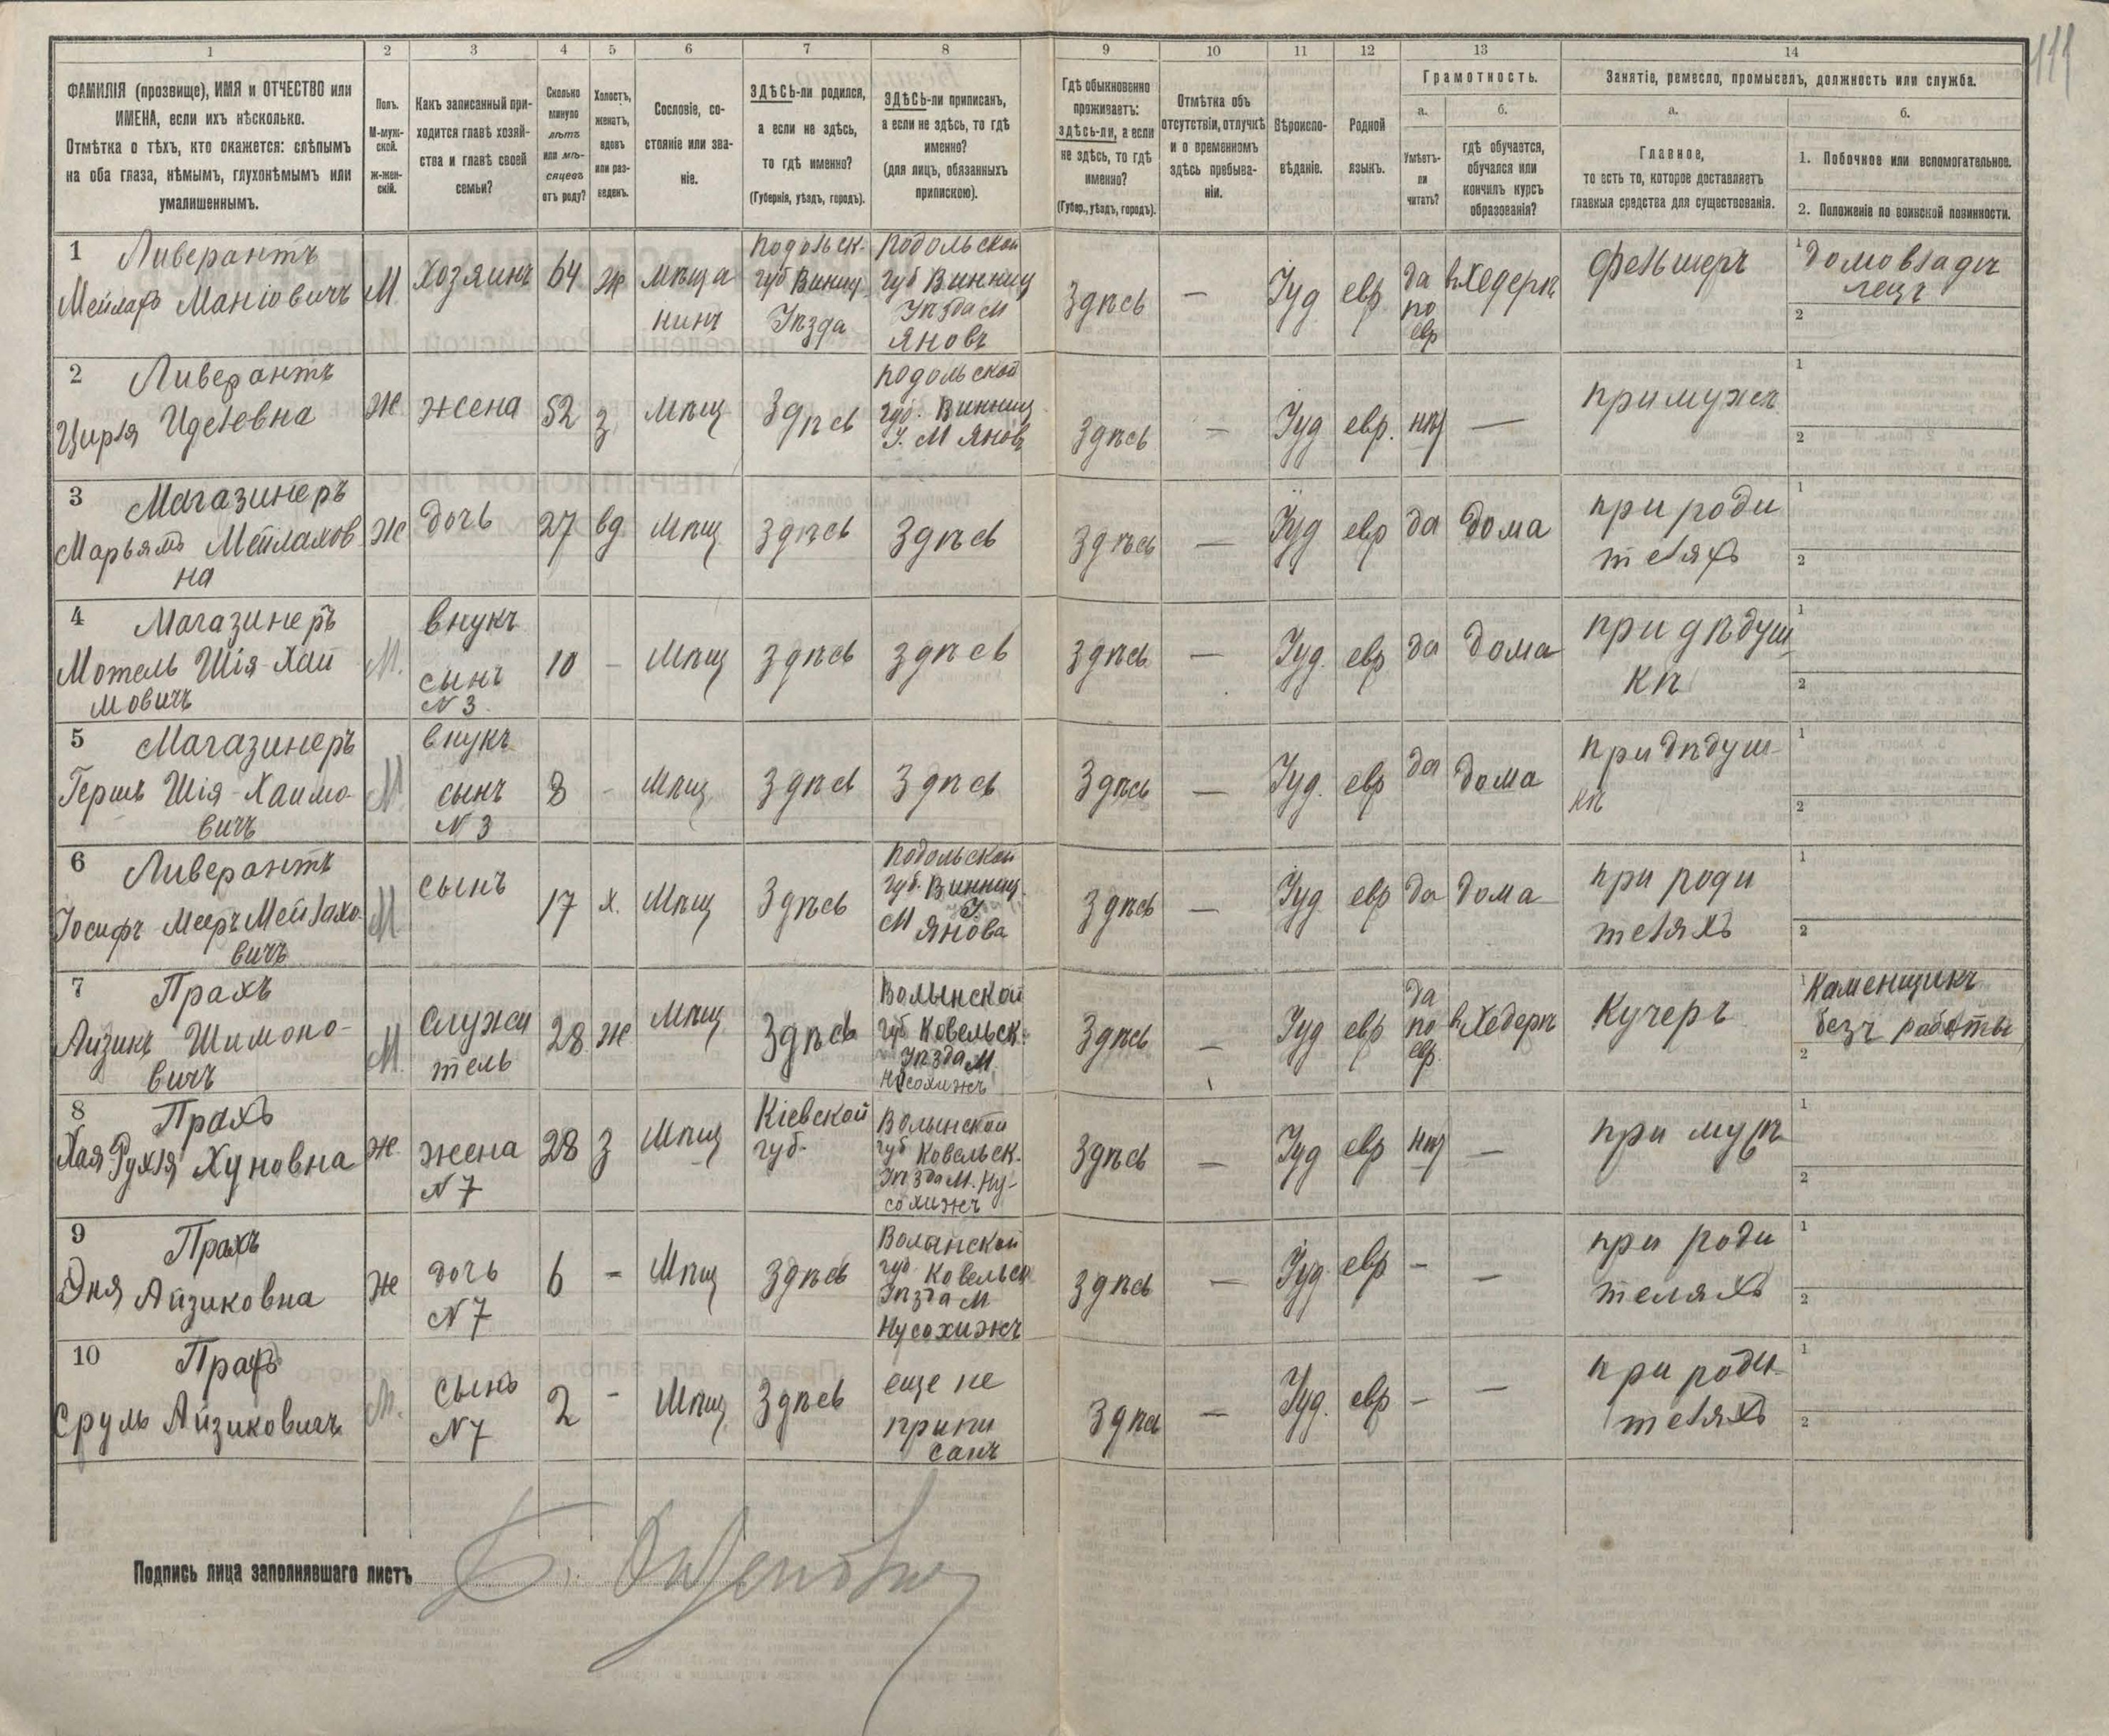 111
1 2 3 4 5 6 7 8 9 10 11 12 13 14
ФАМИЛІЯ (прозвище), ИМЯ и ОТЧЕСТВО или
ИМЕНА, если ихъ нѣсколько.
Отмѣтка о тѣхъ, кто окажется: слѣпымъ
на оба глаза, нѣмымъ, глухонѣмымъ или
умалишеннымъ.
Полъ.
М-муж-
ской.
Ж-жен-
скій.
Какъ записанный при-
ходится главѣ хозяй-
ства и главѣ своей
семьи?
Сколько
минуло
лѣтъ
или мѣ-
сяцевъ
отъ роду?
Холостъ,
женатъ,
вдовъ
или раз-
веденъ.
Сословіе, со-
стояніе или зва-
ніе.
ЗДѢСЬ-ли родился,
а если не здѣсь,
то гдѣ именно?
(Губернія, уѣздъ, городъ).
ЗДѢСЬ-ли приписанъ,
а если не здѣсь, то гдѣ
именно?
(для лицъ, обязанныхъ
припискою).
Гдѣ обыкновенно
проживаетъ:
здѣсь-ли, а если
не здѣсь, то гдѣ
именно?
(Губер., уѣздъ, городъ).
Отмѣтка объ
отсутствіи, отлучкѣ
и о временномъ
здѣсь пребыва-
ніи.
Вѣроиспо-
вѣданіе.
Родной
языкъ.
Грамотность.
а.
Умѣетъ-
ли
читать?
б.
гдѣ обучается,
обучался или
кончилъ курсъ
образованія?
Занятіе, ремесло, промыселъ, должность или служба.
а.
Главное,
то есть то, которое доставляетъ
главныя средства для существованія.
б.
1. Побочное или вспомогательное.
2. Положеніе по воинской повинности.
1 Ливерантъ
Мейлахъ Маніовичъ
М
хозяинъ
64
ж
мѣща
нинъ
Подольск.
губ Винниц
Уѣзда
Подольской
губ Винниц
Уѣзда М
Яновъ
Здѣсь
—
Іуд
евр.
да
по
евр
въ Хедерѣ
фельшеръ
1 домовладѣ
лецъ
2
2 Ливерантъ
Цирля Иделевна
Ж
жена
52
з
мѣщ
Здѣсь
Подольской
губ. Винниц
У. М Янов
Здѣсь
—
Іуд
евр.
нѣт
—
при мужѣ
1
2
3 Магазинеръ
Марьямъ Мейлахов
на
Ж
дочь
27
вд
мѣщ
Здѣсь
Здѣсь
Здѣсь
—
Іуд
евр
да
дома
при роди
теляхъ
1
2
4 Магазинеръ
Мотель Шія-Хаи
мовичъ
М.
внукъ
сынъ
N 3.
10
-
мѣщ
Здѣсь
Здѣсь
Здѣсь
—
Іуд.
евр
да
дома
при дѣдуш
кѣ
1
2
5 Магазинеръ
Гершъ Шія-Хаимо-
вичъ
М
внукъ
сынъ
N 3
8
-
мѣщ
Здѣсь
Здѣсь
Здѣсь
—
Іуд.
евр
да
дома
при дѣдуш-
кѣ
1
2
6 Ливерантъ
Іосифъ Мееръ Мейлахо-
вичъ
М
сынъ
17
х.
мѣщ
Здѣсь
Подольской
губ. Винниц.
У.
М Янова
Здѣсь
—
Іуд
евр
да
дома
при роди
теляхъ
1
2
7 Прахъ
Айзикъ Шимоно-
вичъ
М.
служи
тель
28
ж
мѣщ
Здѣсь
Волынской
губ Ковельск.
Уѣзда М.
Нусохижъ
Здѣсь
—
Іуд
евр
да
по
евр.
въ Хедерѣ
Кучеръ
1 Каменщикъ
безъ работы
2
8 Прахъ
Хая Рухля Хуновна
Ж.
жена
N 7
28
з
мѣщ
Кіевской
губ.
Волынской
губ Ковельск.
Уѣзда М. Ну-
сохижъ
Здѣсь
—
Іуд
евр
нѣт
—
при мужѣ
1
2
9 Прахъ
Эня Айзиковна
Ж
дочь
N 7
6
-
мѣщ
Здѣсь
Волынской
губ. Ковельск
Уѣзда М
Нусохижъ
Здѣсь
—
Іуд.
евр
-
—
при роди
теляхъ
1
2
10 Прахъ
Сруль Айзиковичъ
М.
сынъ
N 7
2
-
мѣщ
Здѣсь
еще не
припи
санъ
Здѣсь
—
Іуд.
евр
-
—
при роди-
теляхъ
1
2
Подпись лица заполнявшаго листъ